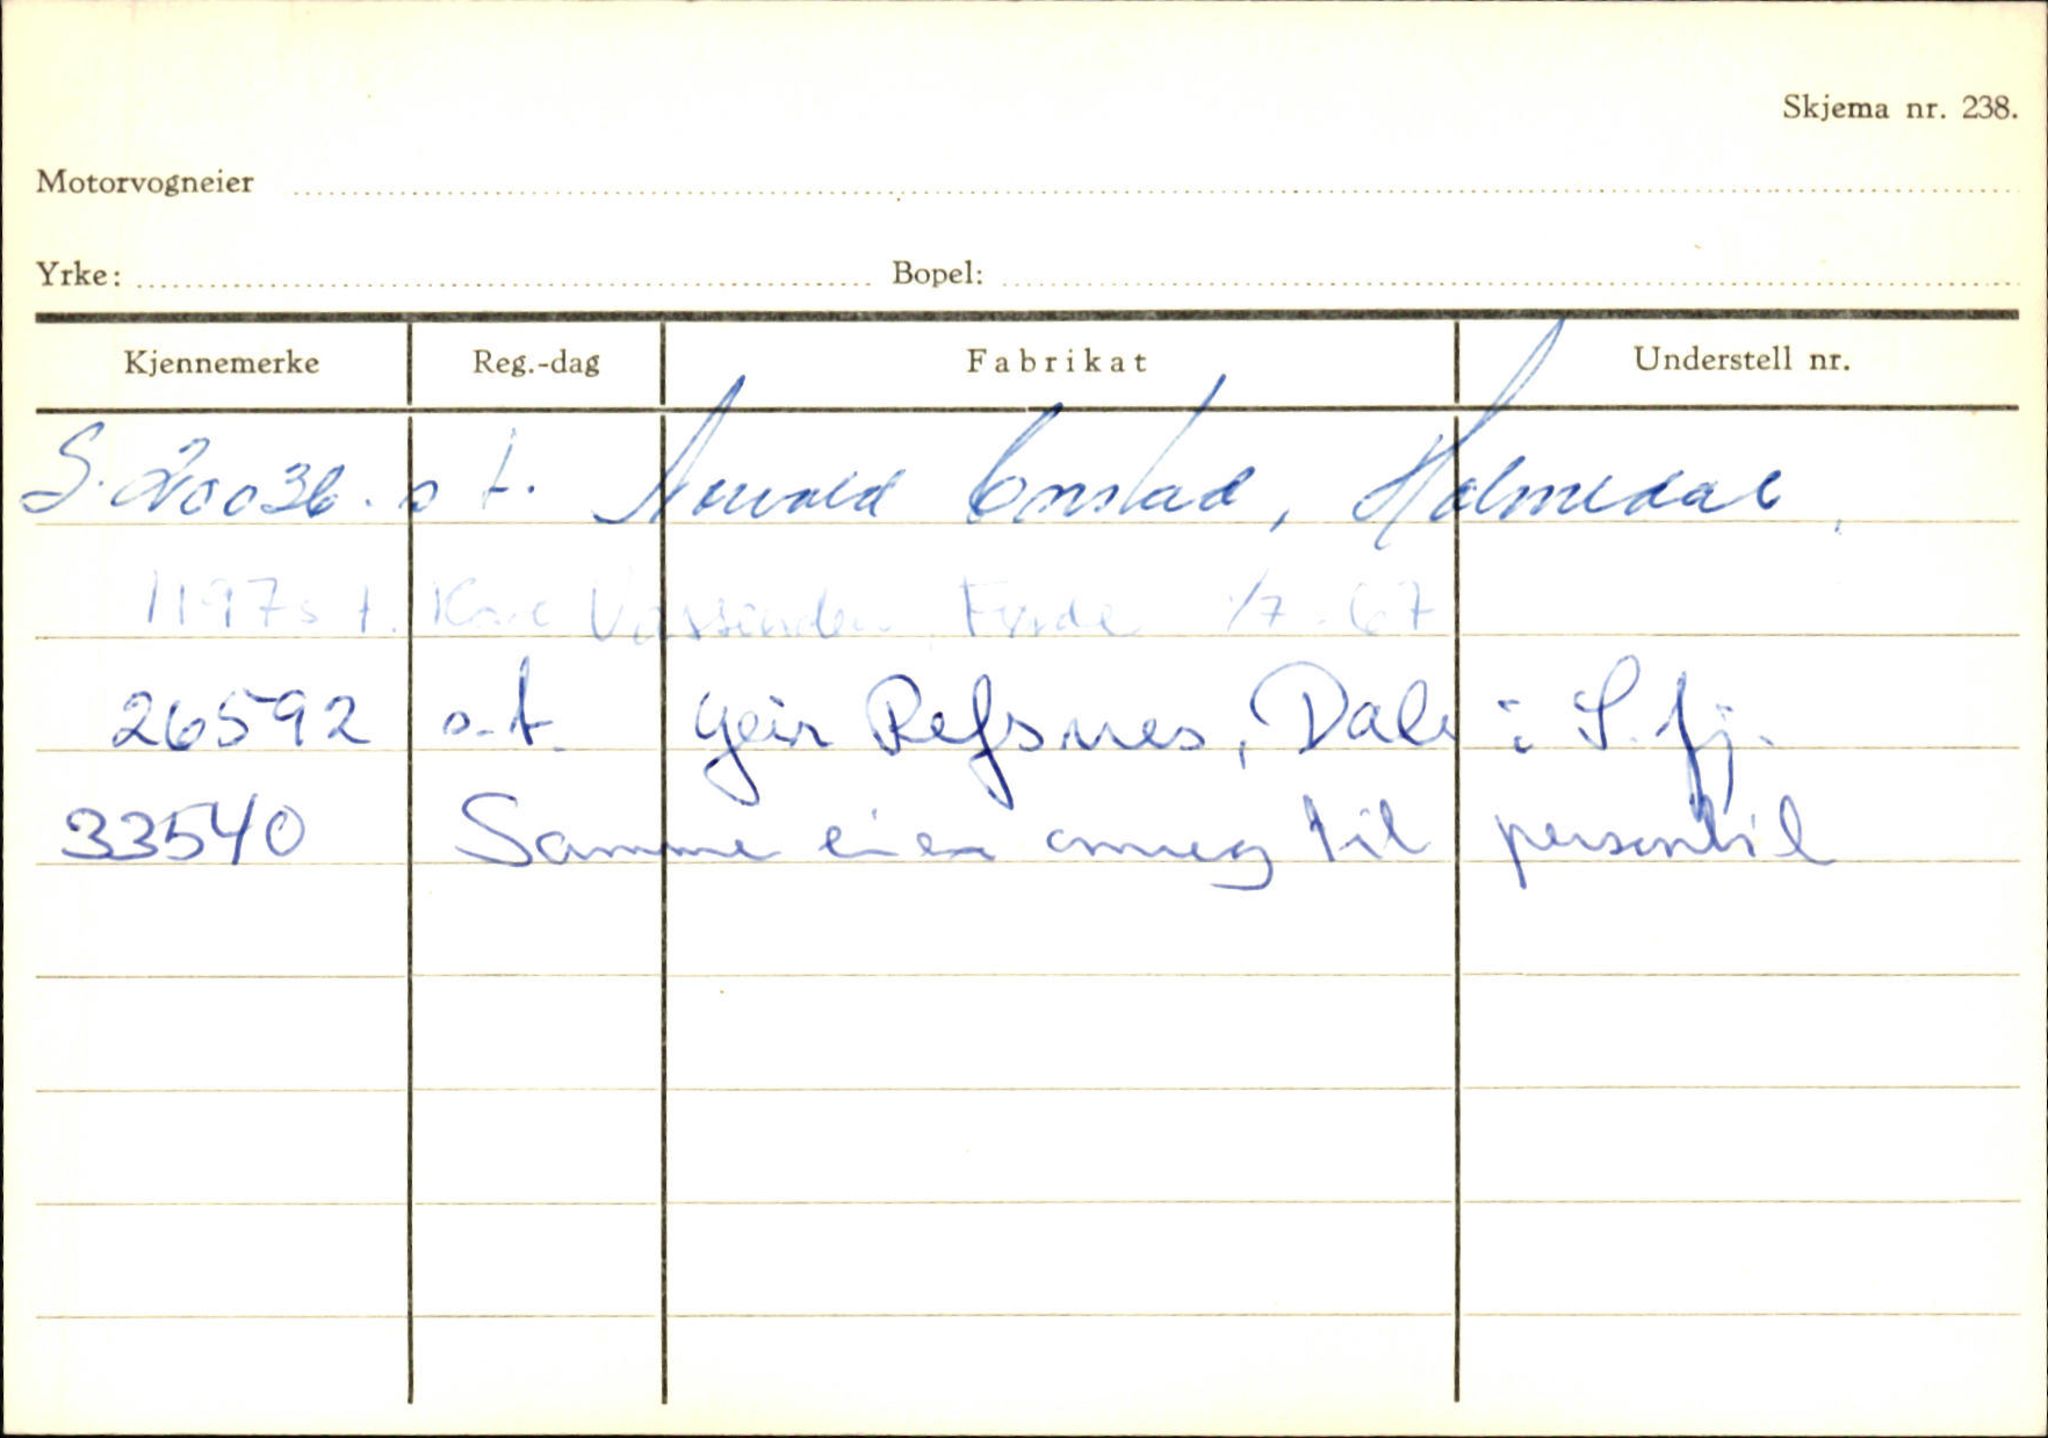 Skjema nr. 238.
Motorvogneier
Yrke: Bopel:
Kjennemerke Reg.-dag Fabrikat Understell nr.
S-20036. o t. Holmedal,
Førde 1/7-67
26592 o.t. Geir Refsnes, Dale i S.fj.
33540 Samme eier omreg til personbil